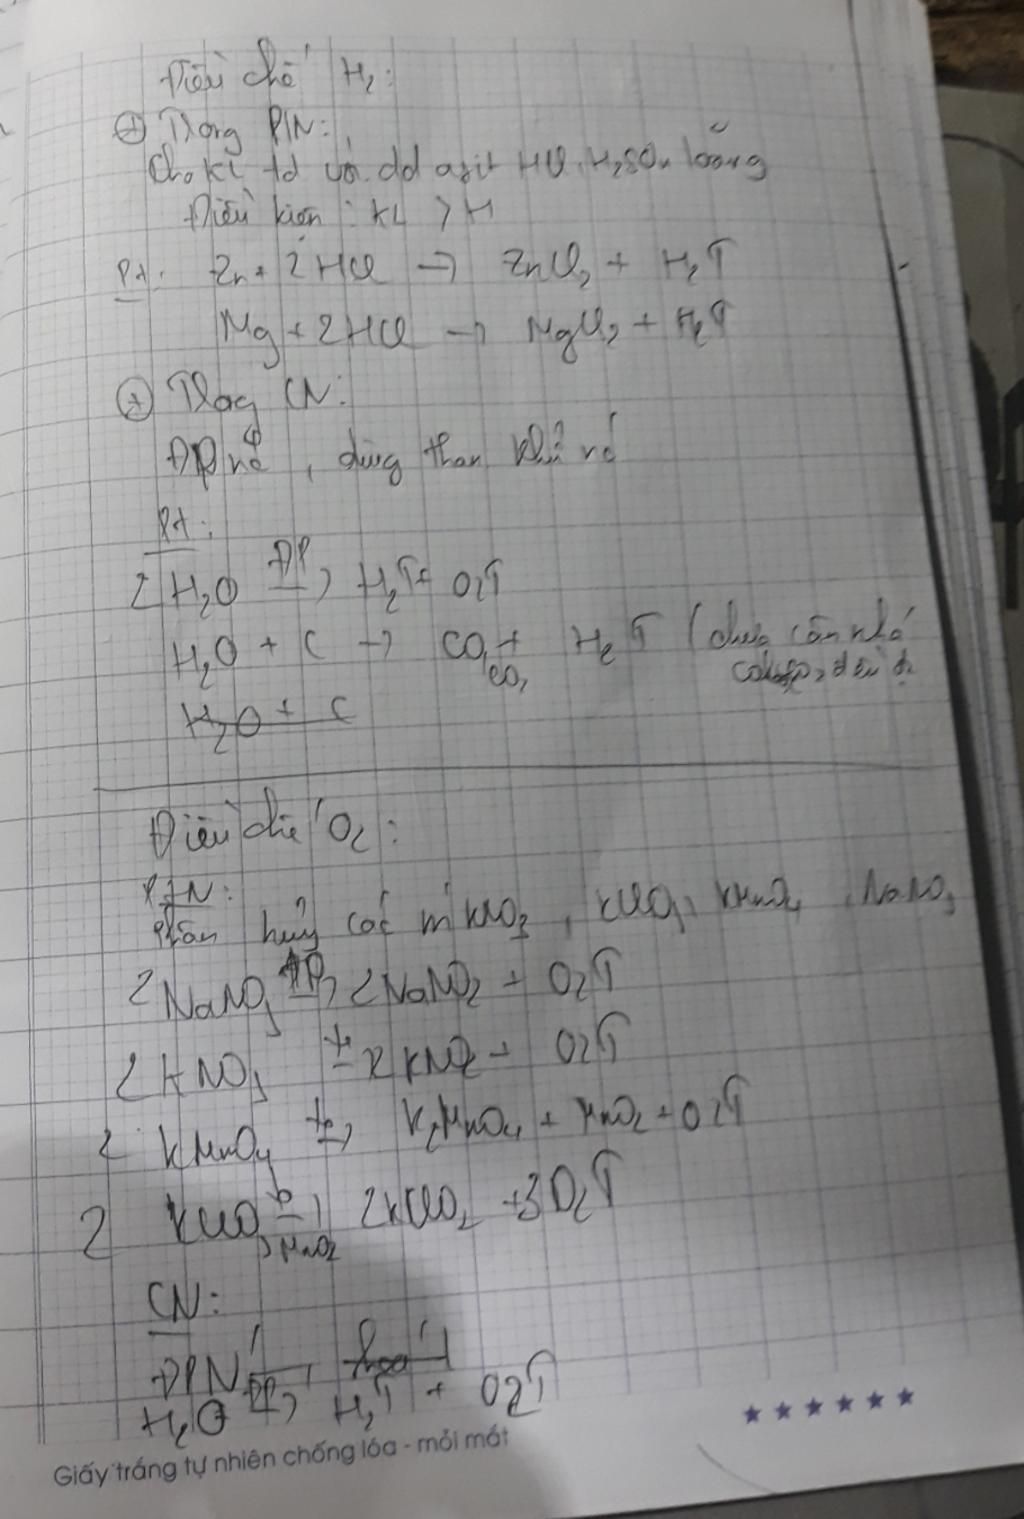 Điều chế H₂:
⊕ Trong PTN:
Cho KL td với dd axit HCl, H₂SO₄ loãng
Điều kiện: KL > H
Pt: Zn + 2HCl → ZnCl₂ + H₂↑
Mg + 2HCl → MgCl₂ + H₂↑
⊕ Trong CN:
ĐP nc, dùng than khử nc
Pt:
2H₂O ĐP→ H₂↑ + O₂↑
H₂O + C → CO, + H₂↑ (chưa cần nhớ
CO₂
H₂O + C
Điều chế O₂:
PTN:
Phân hủy các m KNO₃, KClO₃, KMnO₄, NaNO₃
2NaNO₃ → 2NaNO₂ + O₂↑
2KNO₃ t° → 2KNO₂ + O₂↑
2 KMnO₄ t° → K₂MnO₄ + MnO₂ + O₂↑
2 KClO₃ t° → 2KClO₂ + 3O₂↑
MnO₂
CN:
ĐPN
H₂O ĐP→ H₂↑ + O₂↑
★★★★★★
Giấy trắng tự nhiên chống lóa - mỏi mắt